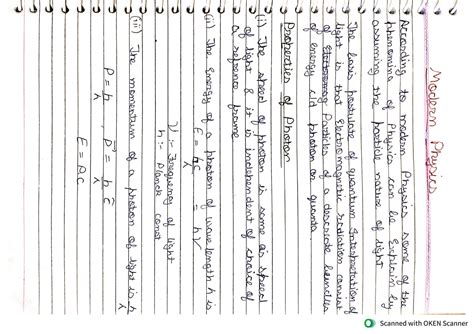 Modern Physics
According to modern Physics some of the
phenomina of Physics can be Explain by
assuming the particle nature of light
The basic postulate of quantum Interpretation of
light is that Electromagnetic radiation consist
of Particles of a descrete bundles
of energy c/d photon or quanta
Properties of Photon
(i) The speed of photon is same as speed
of light & it is independent of choice of
a refrence frame
(ii) The Energy of a photon of wave length λ is
E = hc/λ = hν
ν :- Frequency of light
h :- Planck const
(iii) The momentum of a photon of light is h/λ
P = h/λ
E = PC
Scanned with OKEN Scanner